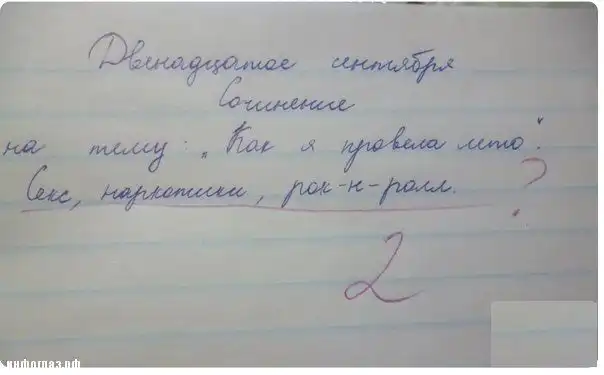 Двенадцатое сентября
Сочинение
на тему: „Как я провела лето".
Секс, наркотики, рок-н-ролл. ?
2
инфоглаз.рф